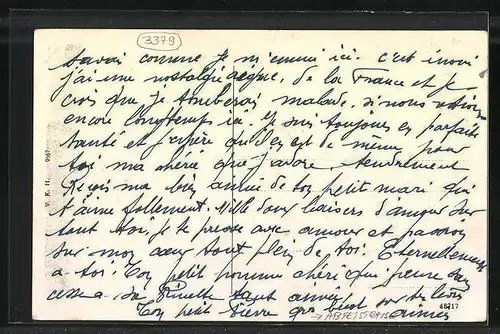 3379
savais comme je m'ennui ici. c'est inouï
j'ai une nostalgie de la France et je
crois que je tomberai malade, si nous restions
encore longtemps ici. Je suis toujours en parfaite
santé et j'espère qu'il en est de même pour
toi ma chère que j'adore, tendrement
Reçois ma bien aimée de ton petit mari qui
t'aime follement. Mille doux baisers d'amour sur
tout toi, je te presse avec amour et passion
sur mon cœur tout plein de toi. Eternellement
a toi. Ton petit homme chéri qui pense sans
cesse a sa tant aimée
Ton petit Pierre gros bisot sur tes lèvres
aimées
V. K. H.